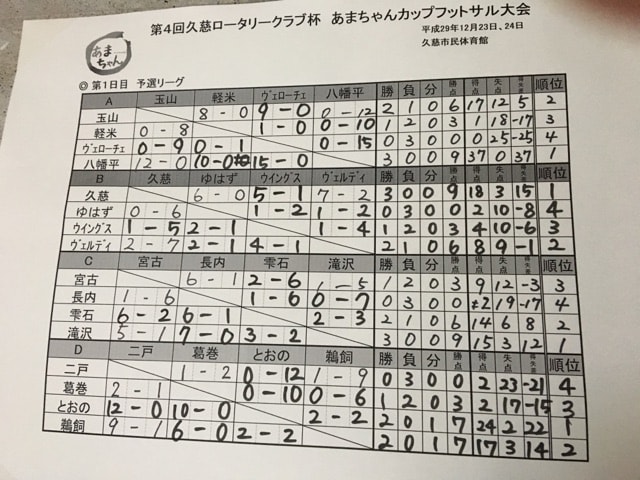 第4回久慈ロータリークラブ杯 あまちゃんカップフットサル大会
平成29年12月23日、24日
久慈市民体育館
あまちゃん
◎ 第1日目 予選リーグ
A 玉山 軽米 ヴェローチェ 八幡平 勝 負 分 勝点 得点 失点 得失差 順位
玉山 8 - 0 9 - 0 0 - 12 2 1 0 6 17 12 5 2
軽米 0 - 8 1 - 0 0 - 10 1 2 0 3 1 18 -17 3
ヴェローチェ 0 - 9 0 - 1 0 - 15 0 3 0 0 0 25 -25 4
八幡平 12 - 0 10 - 0 15 - 0 3 0 0 9 37 0 37 1
B 久慈 ゆはず ウイングス ヴェルディ 勝 負 分 勝点 得点 失点 得失差 順位
久慈 6 - 0 5 - 1 7 - 2 3 0 0 9 18 3 15 1
ゆはず 0 - 6 1 - 2 1 - 2 0 3 0 0 2 10 -8 4
ウイングス 1 - 5 2 - 1 1 - 4 1 2 0 3 4 10 -6 3
ヴェルディ 2 - 7 2 - 1 4 - 1 2 1 0 6 8 9 -1 2
C 宮古 長内 雫石 滝沢 勝 負 分 勝点 得点 失点 得失差 順位
宮古 6 - 1 2 - 6 1 - 5 1 2 0 3 9 12 -3 3
長内 1 - 6 1 - 6 0 - 7 0 3 0 2 19 -17 4
雫石 6 - 2 6 - 1 2 - 3 2 1 0 6 14 6 8 2
滝沢 5 - 1 7 - 0 3 - 2 3 0 0 9 15 3 12 1
D 二戸 葛巻 とおの 鵜飼 勝 負 分 勝点 得点 失点 得失差 順位
二戸 1 - 2 0 - 12 1 - 9 0 3 0 0 2 23 -21 4
葛巻 2 - 1 0 - 10 0 - 6 1 2 0 3 2 17 -15 3
とおの 12 - 0 10 - 0 2 - 2 2 0 1 7 24 2 22 1
鵜飼 9 - 1 6 - 0 2 - 2 2 0 1 7 17 3 14 2